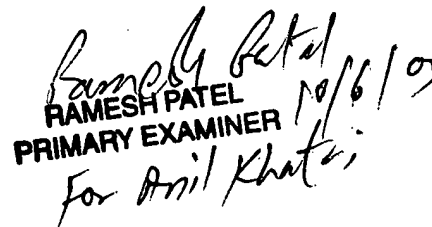 Ramesh Patel
RAMESH PATEL 10/6/05
PRIMARY EXAMINER
For Anil Khatri